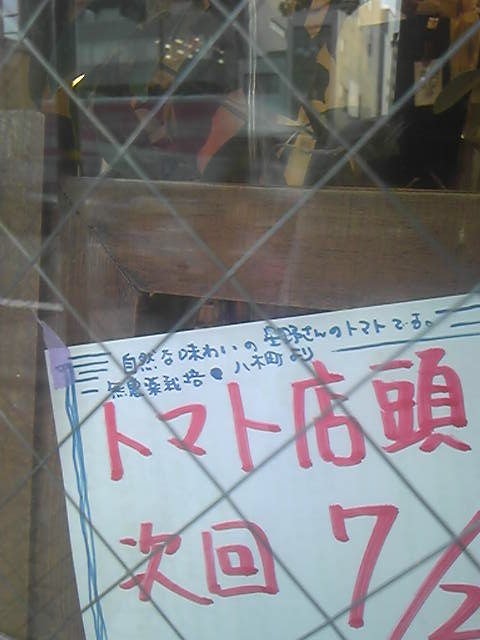 自然な味わいの星野さんのトマトです。
無農薬栽培・八木町より
トマト店頭
次回 7/2